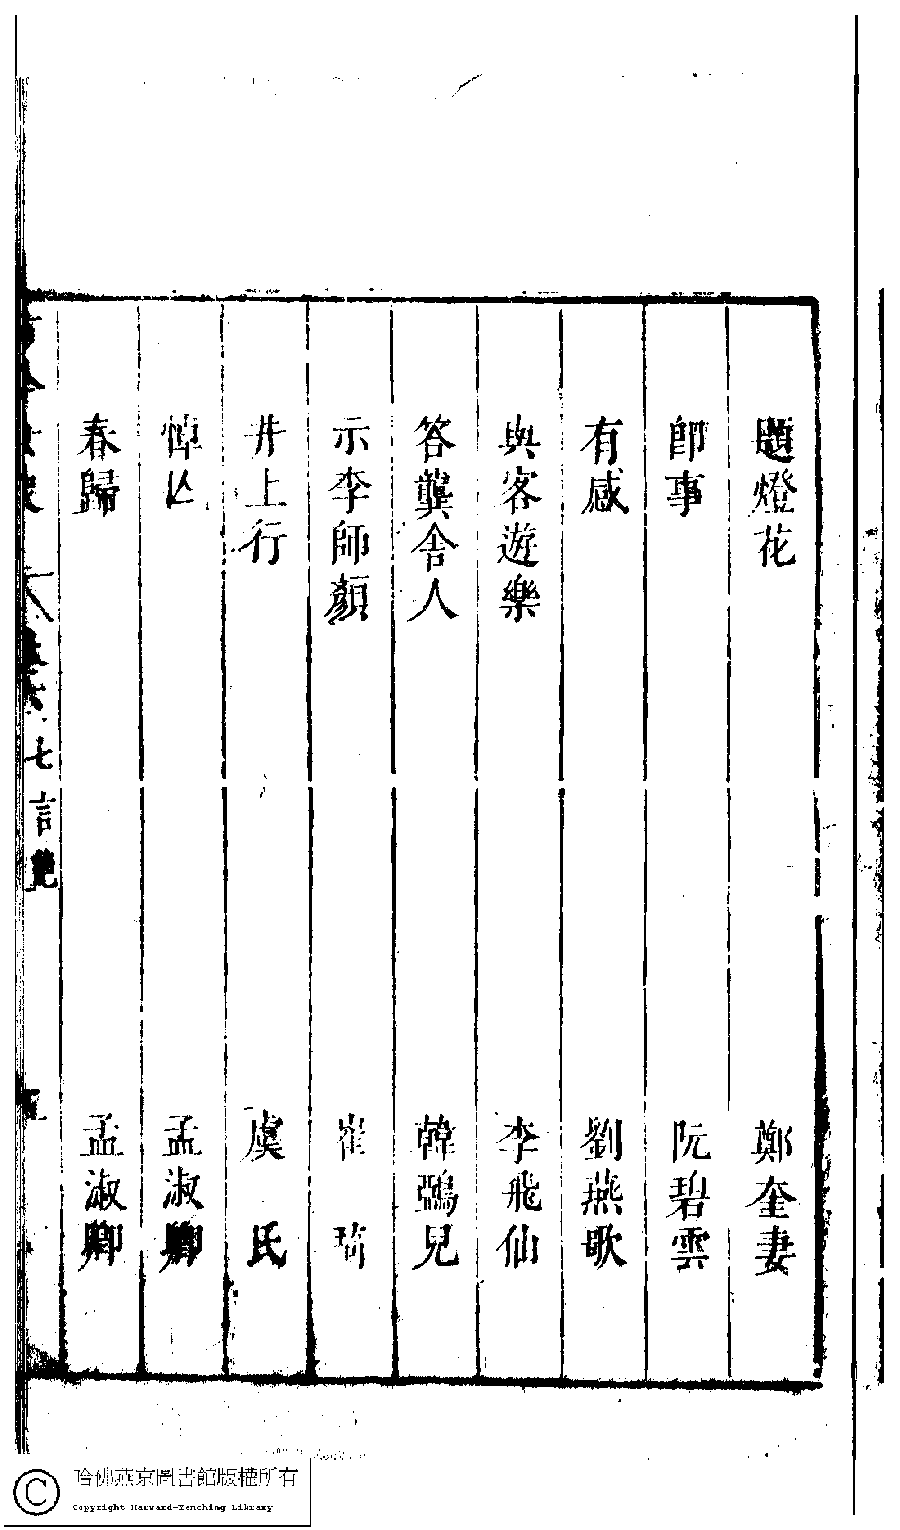 題燈花 鄭奎妻
卽事 阮碧雲
有感 劉燕歌
與客遊樂 李飛仙
答龔舍人 韓鵷兒
示李師顏 崔
井上行 虞氏
悼亾 孟淑卿
春歸 孟淑卿
七言艷 五
哈佛燕京圖書館版權所有
Copyright Harvard-Yenching Library